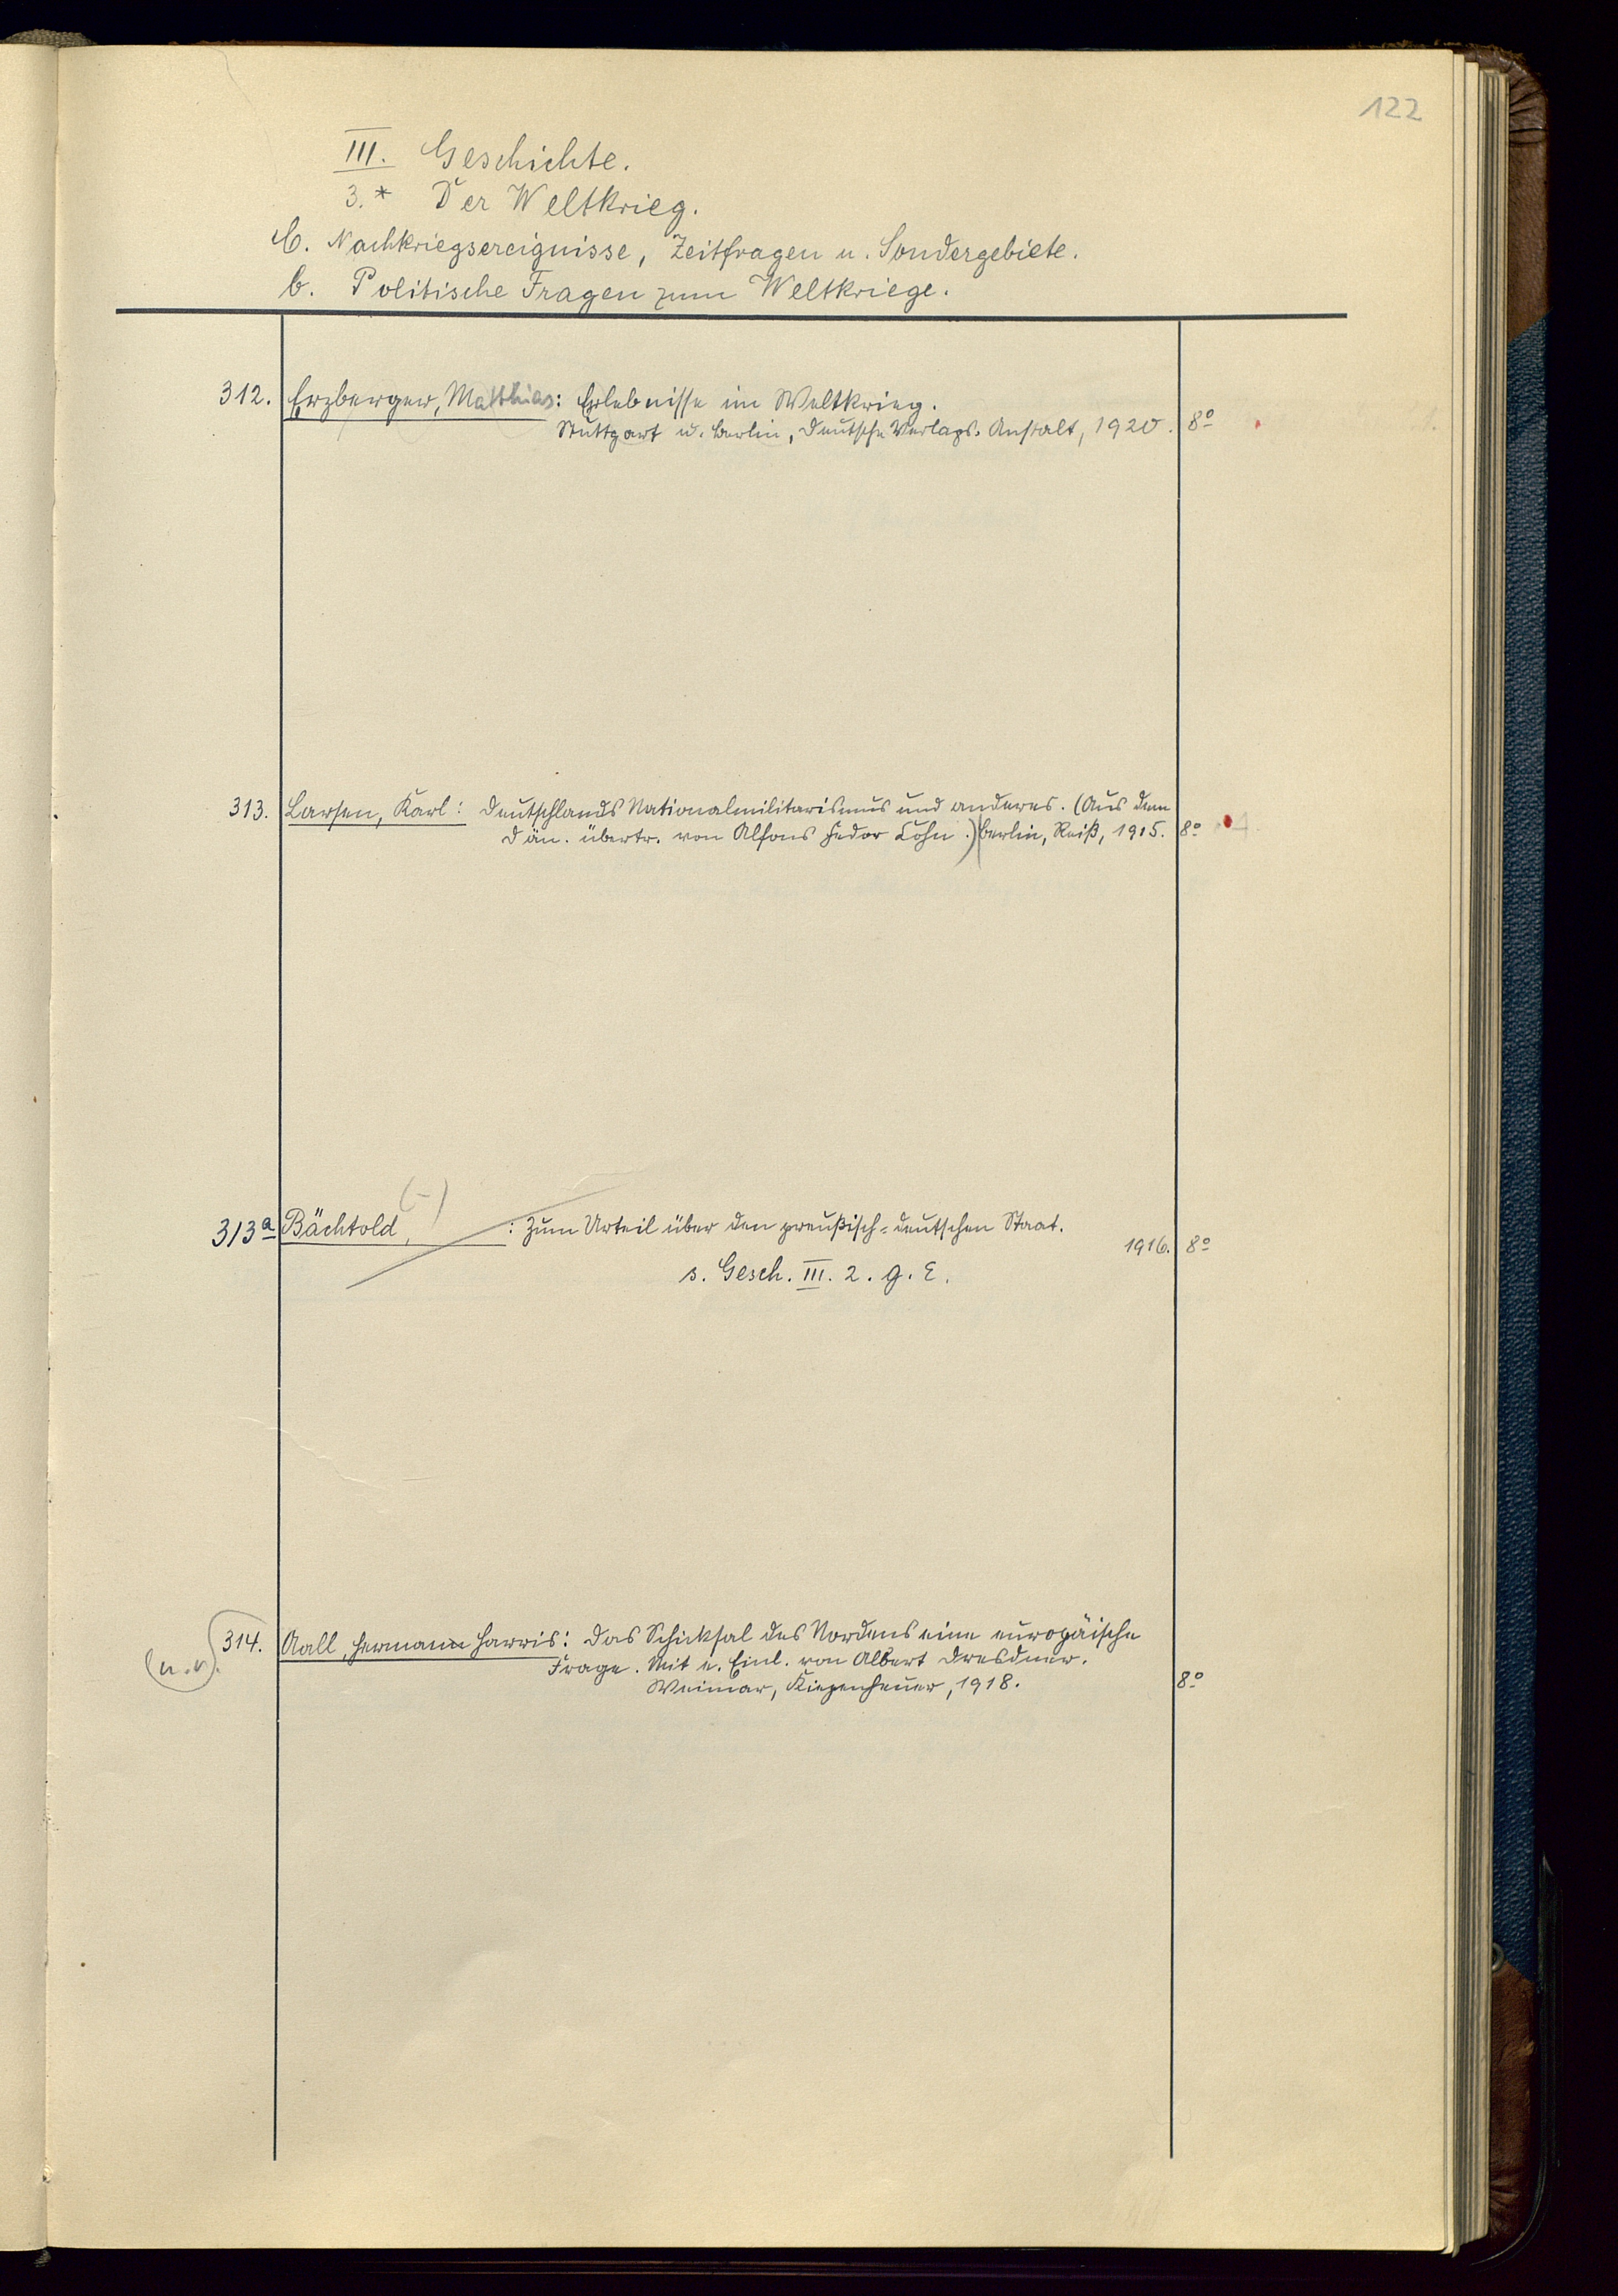 122
III. Geschichte.
3.* Der Weltkrieg.
C. Nachkriegsereignisse, Zeitfragen u. Sondergebiete.
b. Politische Fragen zum Weltkriege.
312. Erzberger, Matthias: Erlebnisse im Weltkrieg.
Stuttgart u. Berlin, Deutsche Verlags-Anstalt, 1920. 8°
313. Larsen, Karl: Deutschlands Nationalmilitarismus und anderes. (Aus dem
Dän. übertr. von Alfons Fedor Cohn.) Berlin, Reiß, 1915. 8°
(-)
313a Bächtold, : Zum Urteil über den preußisch-deutschen Staat.
1916. 8°
s. Gesch. III. 2. g. E.
314. Aall, Hermann Harris: Das Schicksal des Nordens eine europäische
(n.v.) Frage. Mit e. Einl. von Albert Dresdner.
Weimar, Kiepenheuer, 1918. 8°